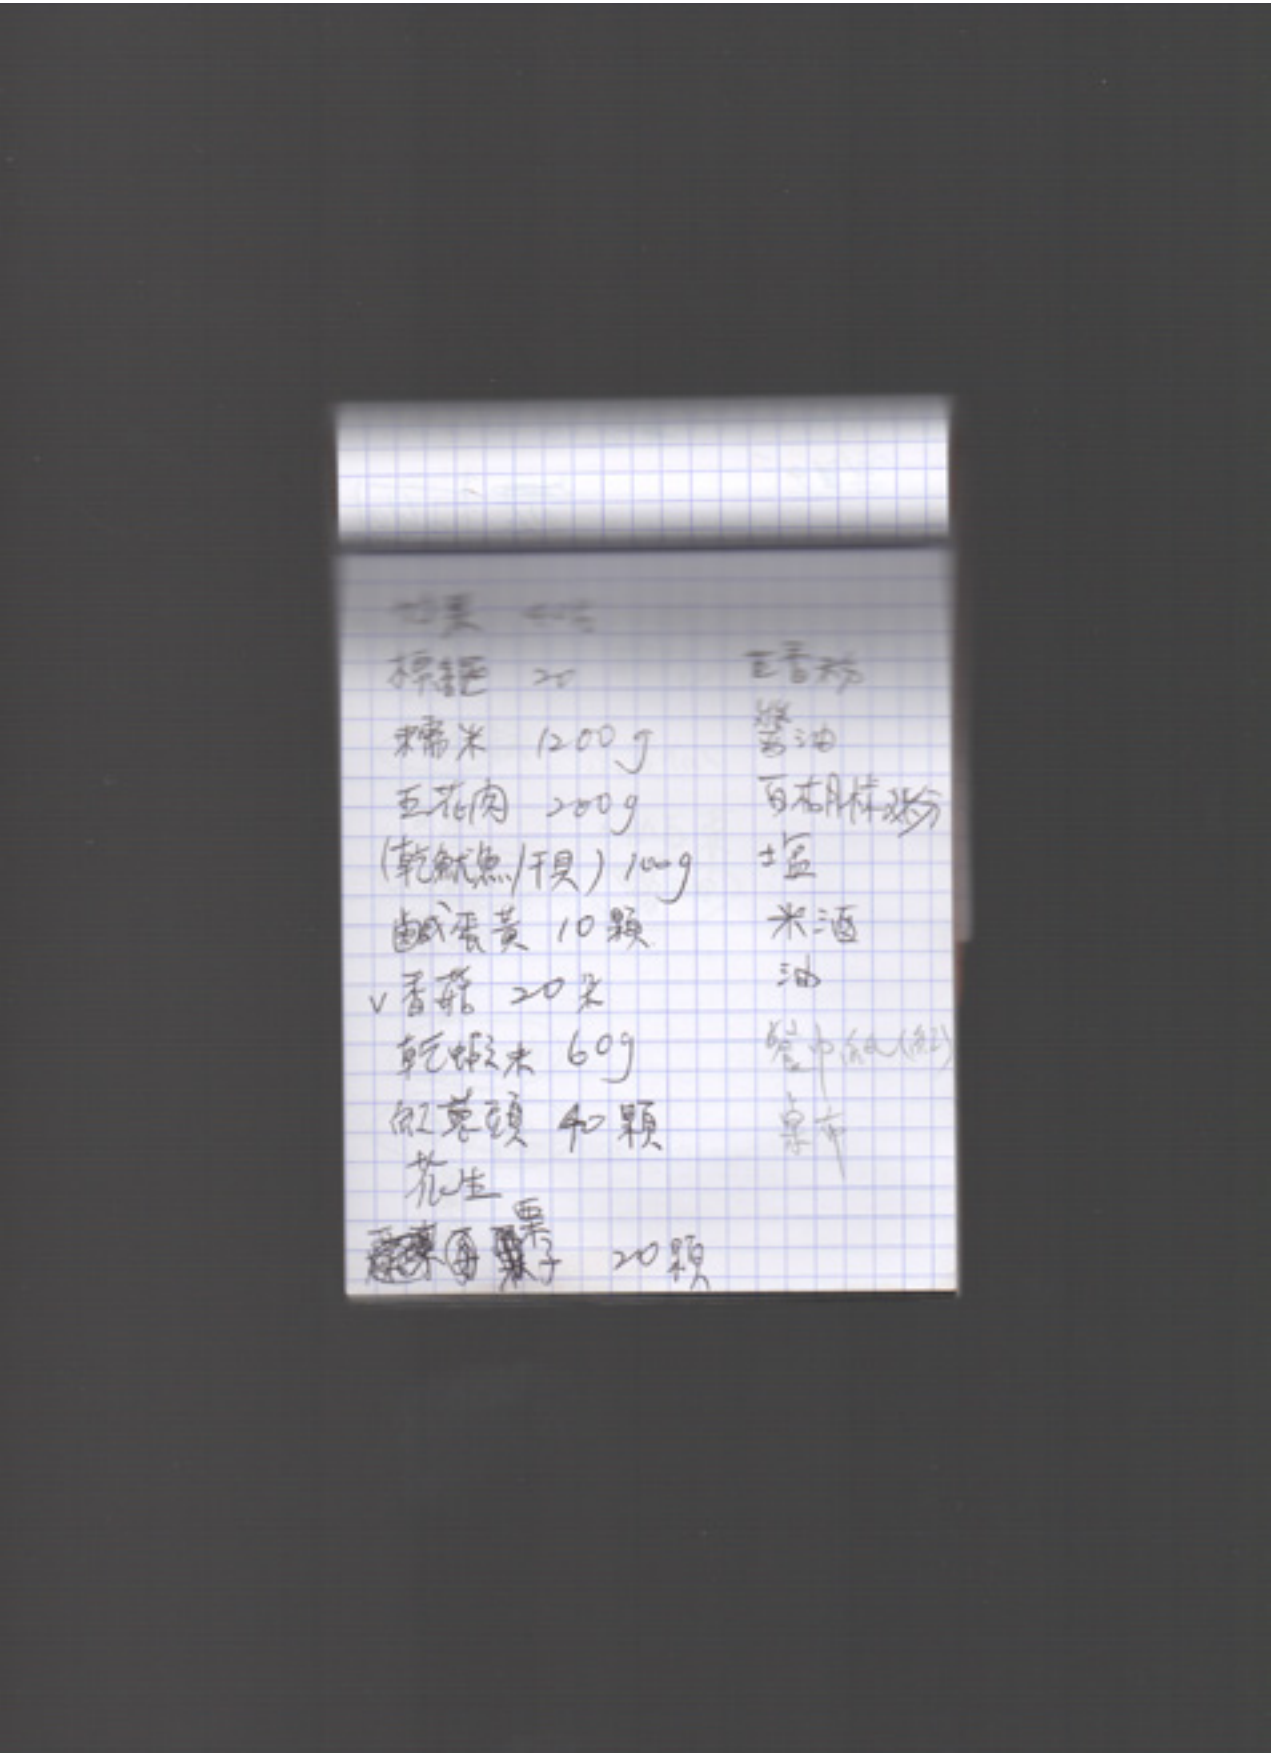 糯米 1200g
五花肉 200g
(乾魷魚/干貝) 100g
鹹蛋黃 10顆
v 香菇 20朵
乾蝦米 60g
紅蔥頭 40顆
花生
栗子 20顆
五香粉
醬油
百胡椒粉
塩
米酒
油
餐巾紙(紅)
桌布